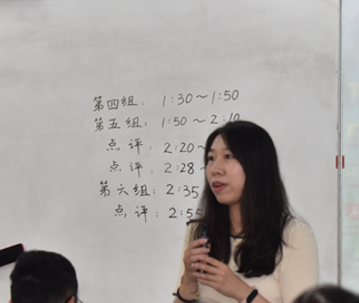 第四组：1:30～1:50
第五组：1:50～2:10
点评：2:20～
点评：2:28
第六组：2:35
点评：2:55